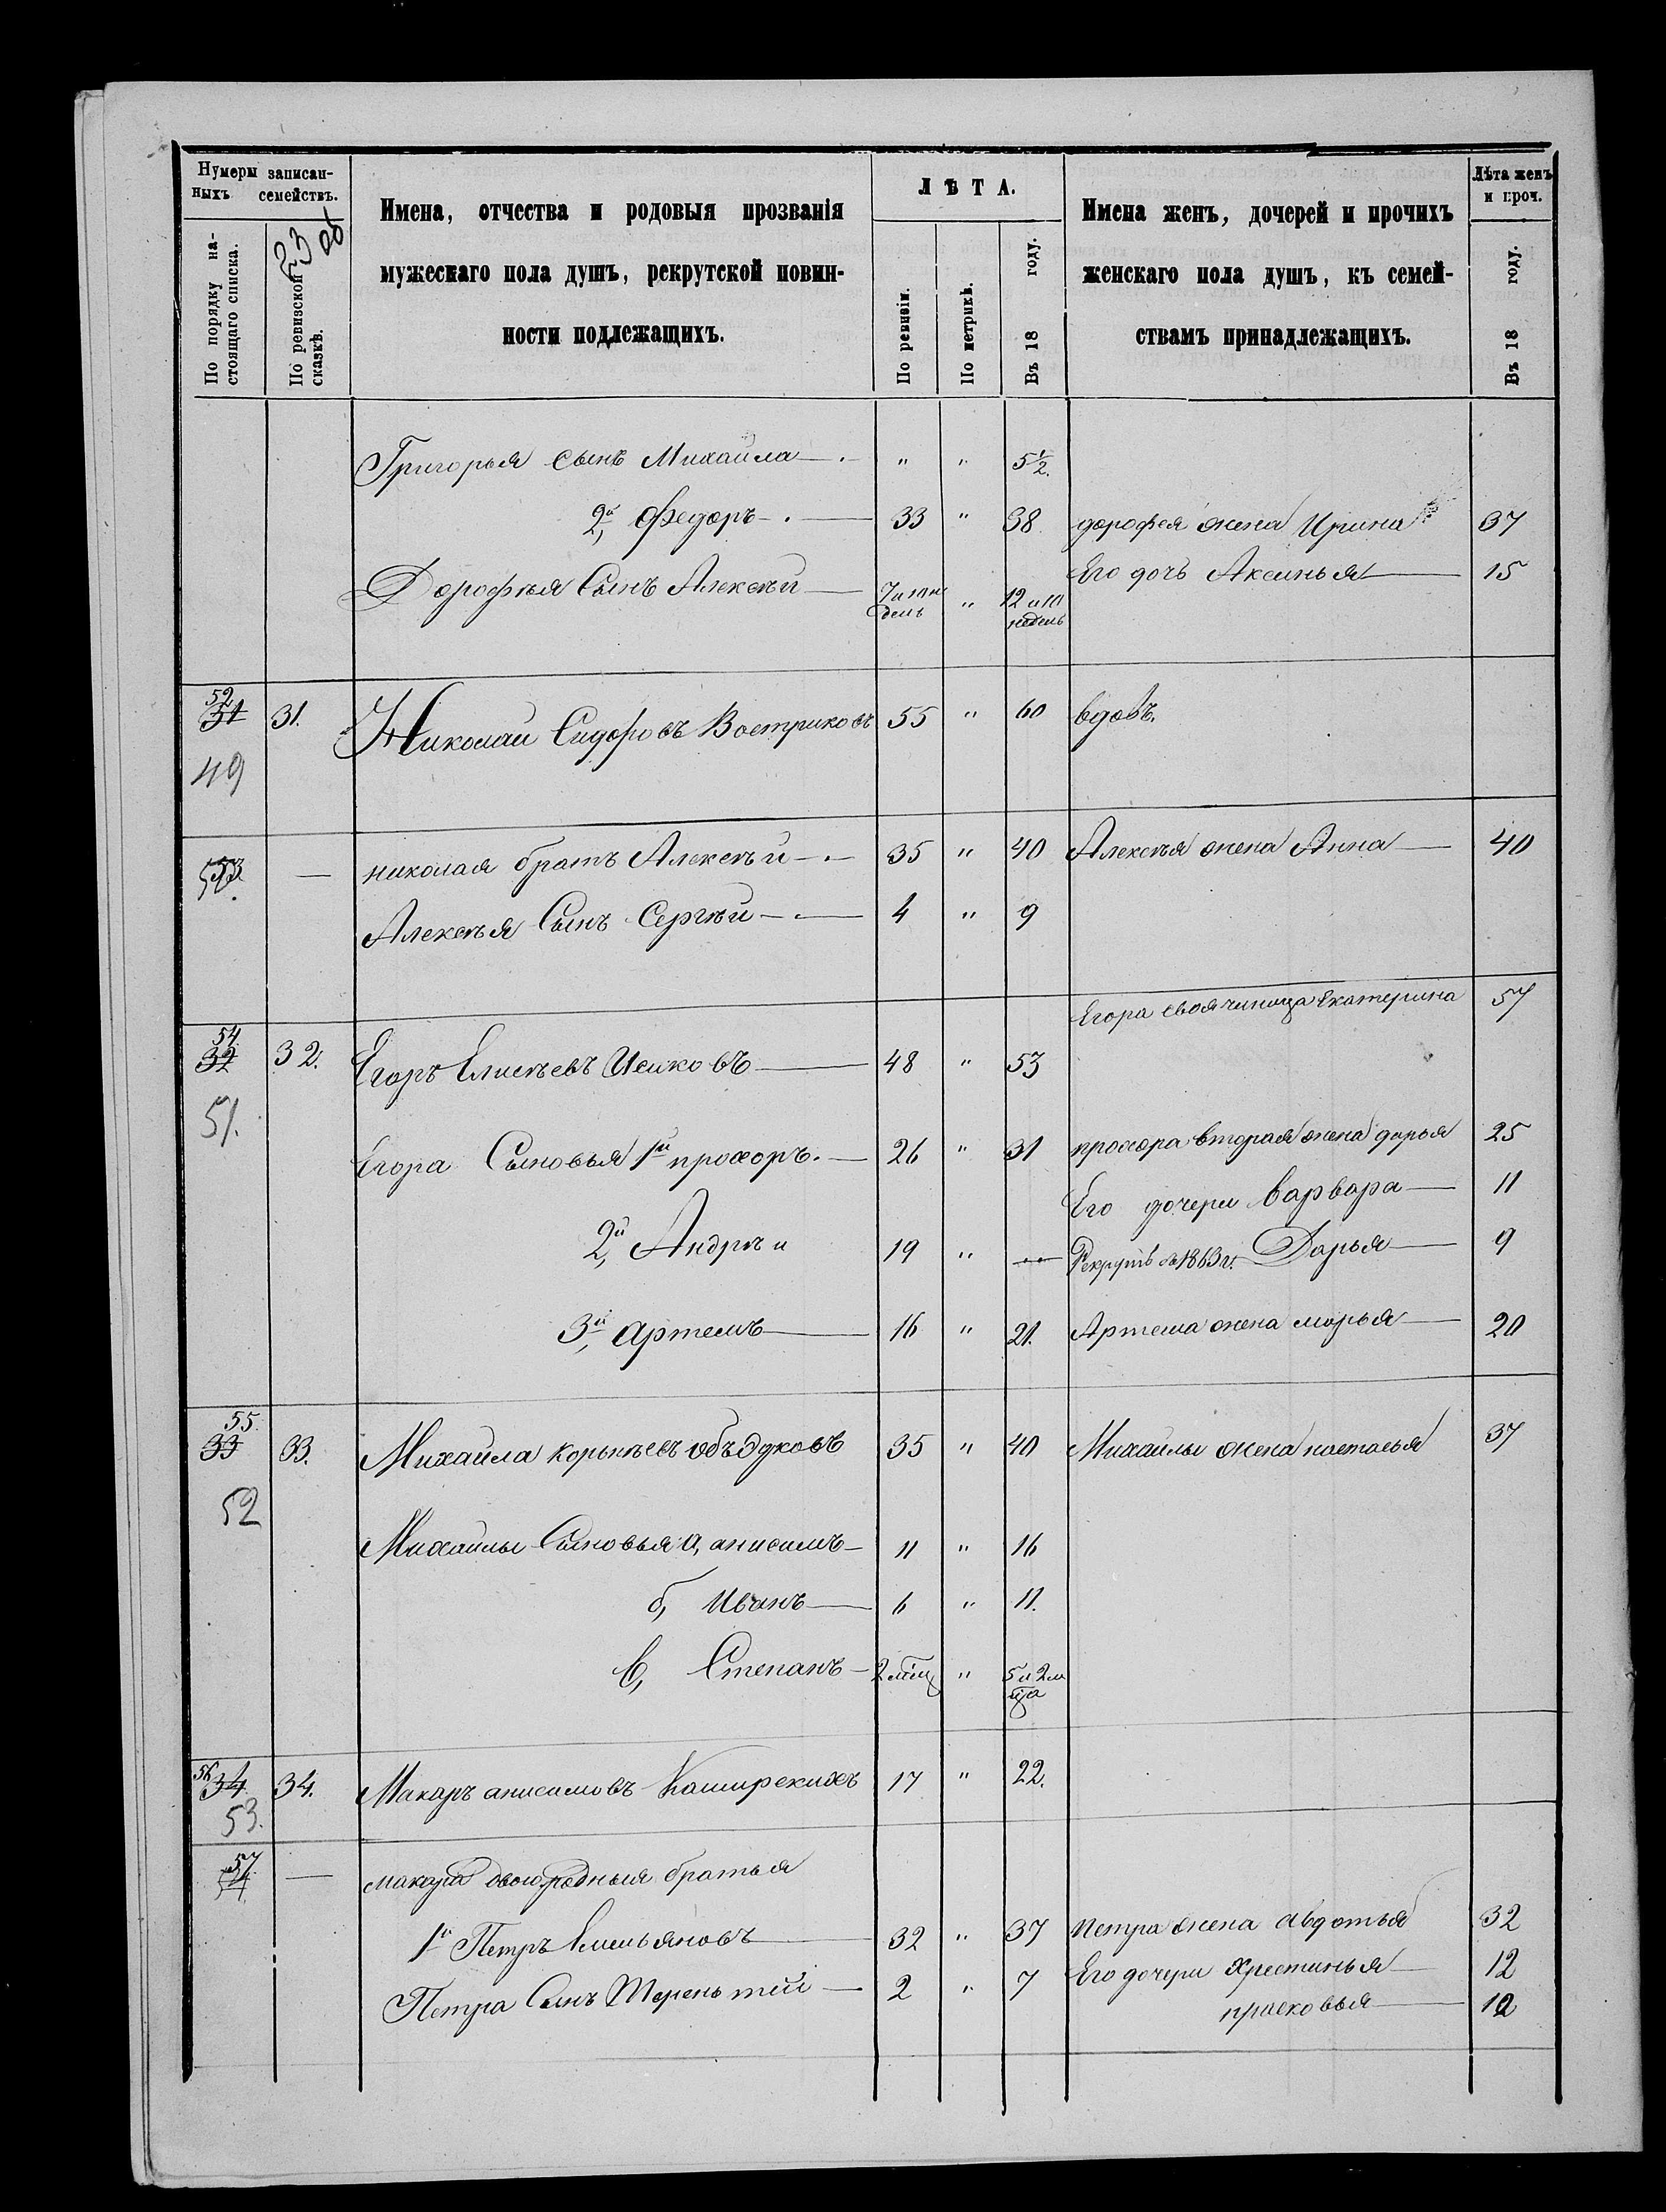 Нумеры записан-
ныхъ семействъ.
По порядку на-
стоящаго списка.
По ревизской
сказкѣ.
23 об
Имена, отчества и родовыя прозванія
мужескаго пола душъ, рекрутской повин-
ности подлежащихъ.
ЛѢТА.
По ревизіи.
По метрикѣ.
Въ 18 году.
Имена женъ, дочерей и прочихъ
женскаго пола душъ, къ семей-
ствамъ принадлежащихъ.
Лѣта женъ
и проч.
Въ 18 году.
Григорья сынъ Михайла " " 5 1/2.
2й, Федоръ 33 " 38. дорофея жена Ирина 37
Его дочь Аксинья 15
Дорофѣя Сынъ Алексѣй 7 и 10 не
дель " 12 и 10
недель
52
31 31. Николай Сидоровъ Востриковъ 55 " 60 вдовъ.
49
53 — николая братъ Алексѣй 35 " 40 Алексѣя жена Анна 40
50.
Алексѣя Сынъ Сергѣй 4 " 9
Егора своячиница Екатерина 57
54
32 32. Егоръ Елисѣевъ Исиковъ 48 " 53
51.
Егора Сыновья 1й прохоръ. 26 " 31 прохора вторая жена дарья 25
Его дочери Варвара 11
2й, Андрѣй 19 " " Рекрутъ въ 1863 г. Дарья 9
3й, артемъ 16 " 21. Артема жена марья 20
55
33 33. Михайла корнѣевъ объѣдковъ 35 " 40 Михайлы жена настасья 37
52
Михайлы Сыновья а, анисимъ 11 " 16
б, Иванъ 6 " 11.
в, Степанъ 2 мѣц " 5 и 2 м
ца
56
34. 34. Макаръ анисимовъ Каширскихъ 17 " 22.
53.
57
54 — макара двоюродныя братья
1й Петръ Емельяновъ 32 " 37 Петра жена авдотья 32
Петра Сынъ Терентий 2 " 7 Его дочери Хрестинья 12
прасковья 10